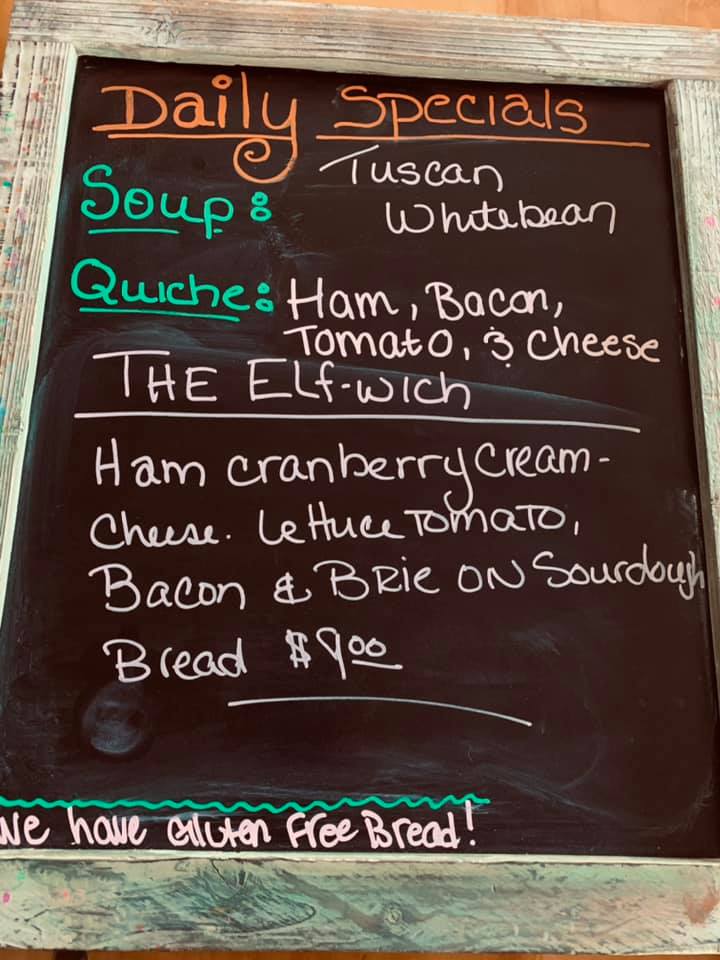 Daily Specials
Soup: Tuscan
Whitebean
Quiche: Ham, Bacon,
Tomato, & Cheese
THE Elf-wich
Ham cranberry Cream-
Cheese. Lettuce Tomato,
Bacon & Brie on Sourdough
Bread $9.00
We have Gluten Free Bread!